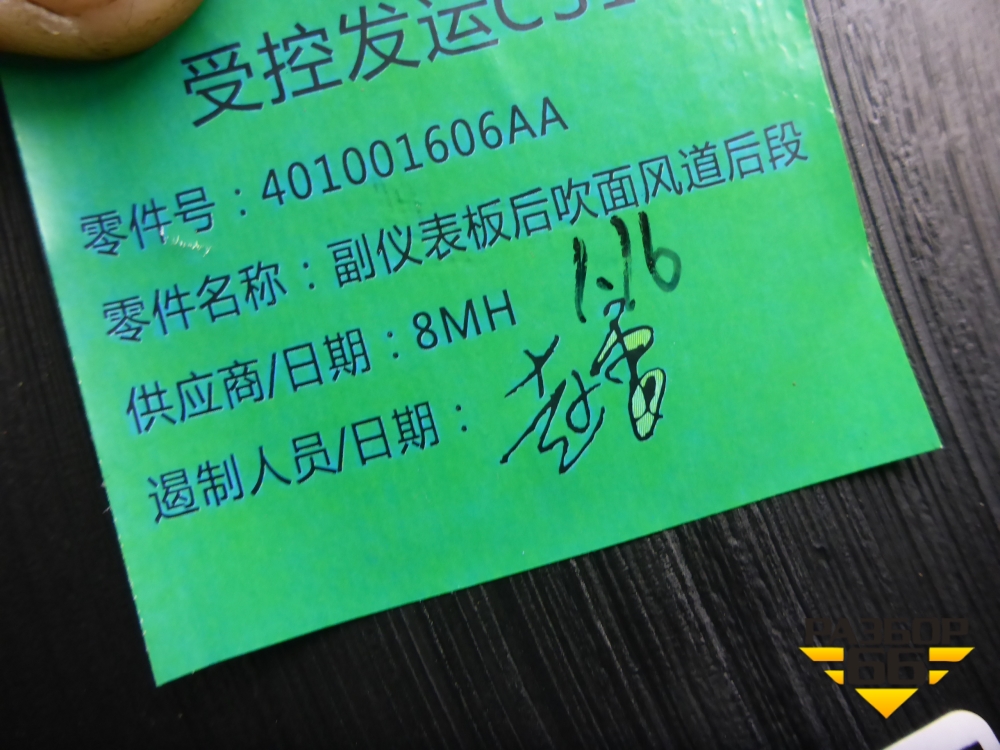 受控发运CS1
零件号：401001606AA
零件名称：副仪表板后吹面风道后段
供应商/日期：8MH 1.16
遏制人员/日期：
РАЗБОР
66